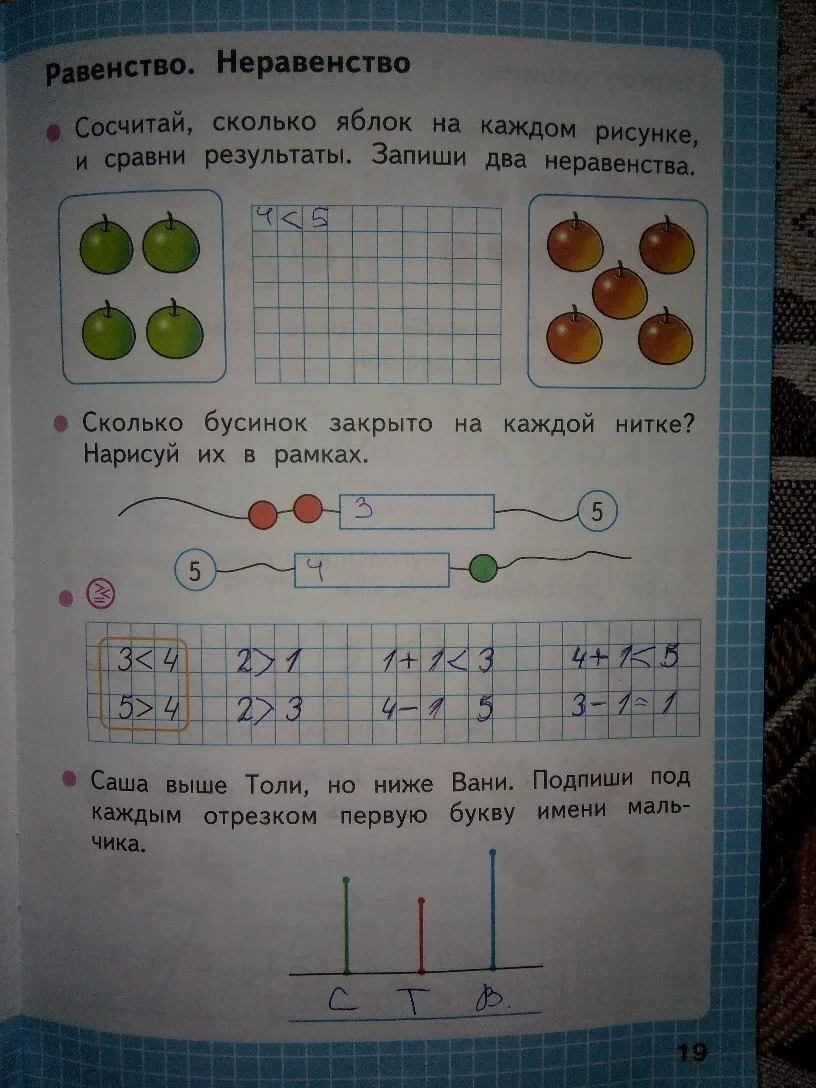 Равенство. Неравенство
Сосчитай, сколько яблок на каждом рисунке,
и сравни результаты. Запиши два неравенства.
4<5
Сколько бусинок закрыто на каждой нитке?
Нарисуй их в рамках.
3 5
5 4
3<4 2>1 1+1<3 4+1<5
5>4 2>3 4-1 5 3-1=1
Саша выше Толи, но ниже Вани. Подпиши под
каждым отрезком первую букву имени маль-
чика.
С Т В.
19